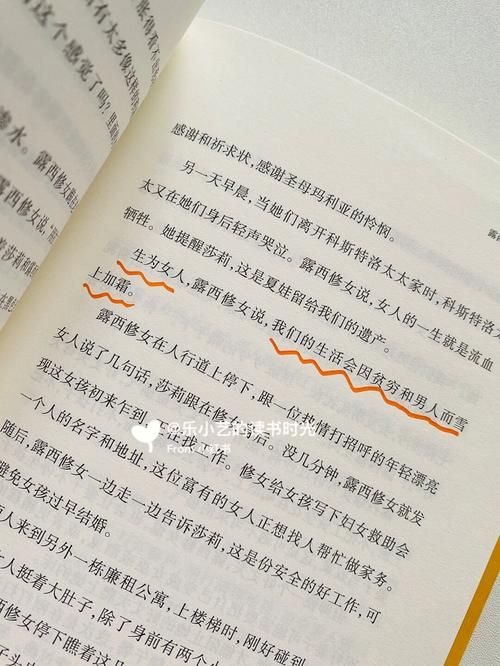 这个感觉了吗？里面
渗水。露西修女
露西修女说，
感谢和祈求状，感谢圣母玛利亚的怜悯。
另一天早晨，当她们离开科斯特洛太太家时，科斯特洛太
太又在她们身后轻声哭泣。露西修女说，女人的一生就是流血
牺牲。她提醒莎莉，这是夏娃留给我们的遗产。
生为女人，露西修女说，我们的生活会因贫穷和男人而雪
上加霜。
露西修女在人行道上停下，跟一位热情打招呼的年轻漂亮
女人说了几句话，莎莉跟在修女身后。没几分钟，露西修女就发
现这女孩初来乍到，正在找工作。修女给女孩写下妇女救助会
一个人的名字和地址，这位富有的女人正想找人帮忙做家务。
随后，露西修女一边走一边告诉莎莉，这是份安全的好工作，可
避免女孩过早结婚。
人来到另外一栋廉租公寓，上楼梯时，刚好碰到
女人挺着大肚子，除了身前有两个小
修女停下瞧着这
@乐小艺的读书时光
From 小红书